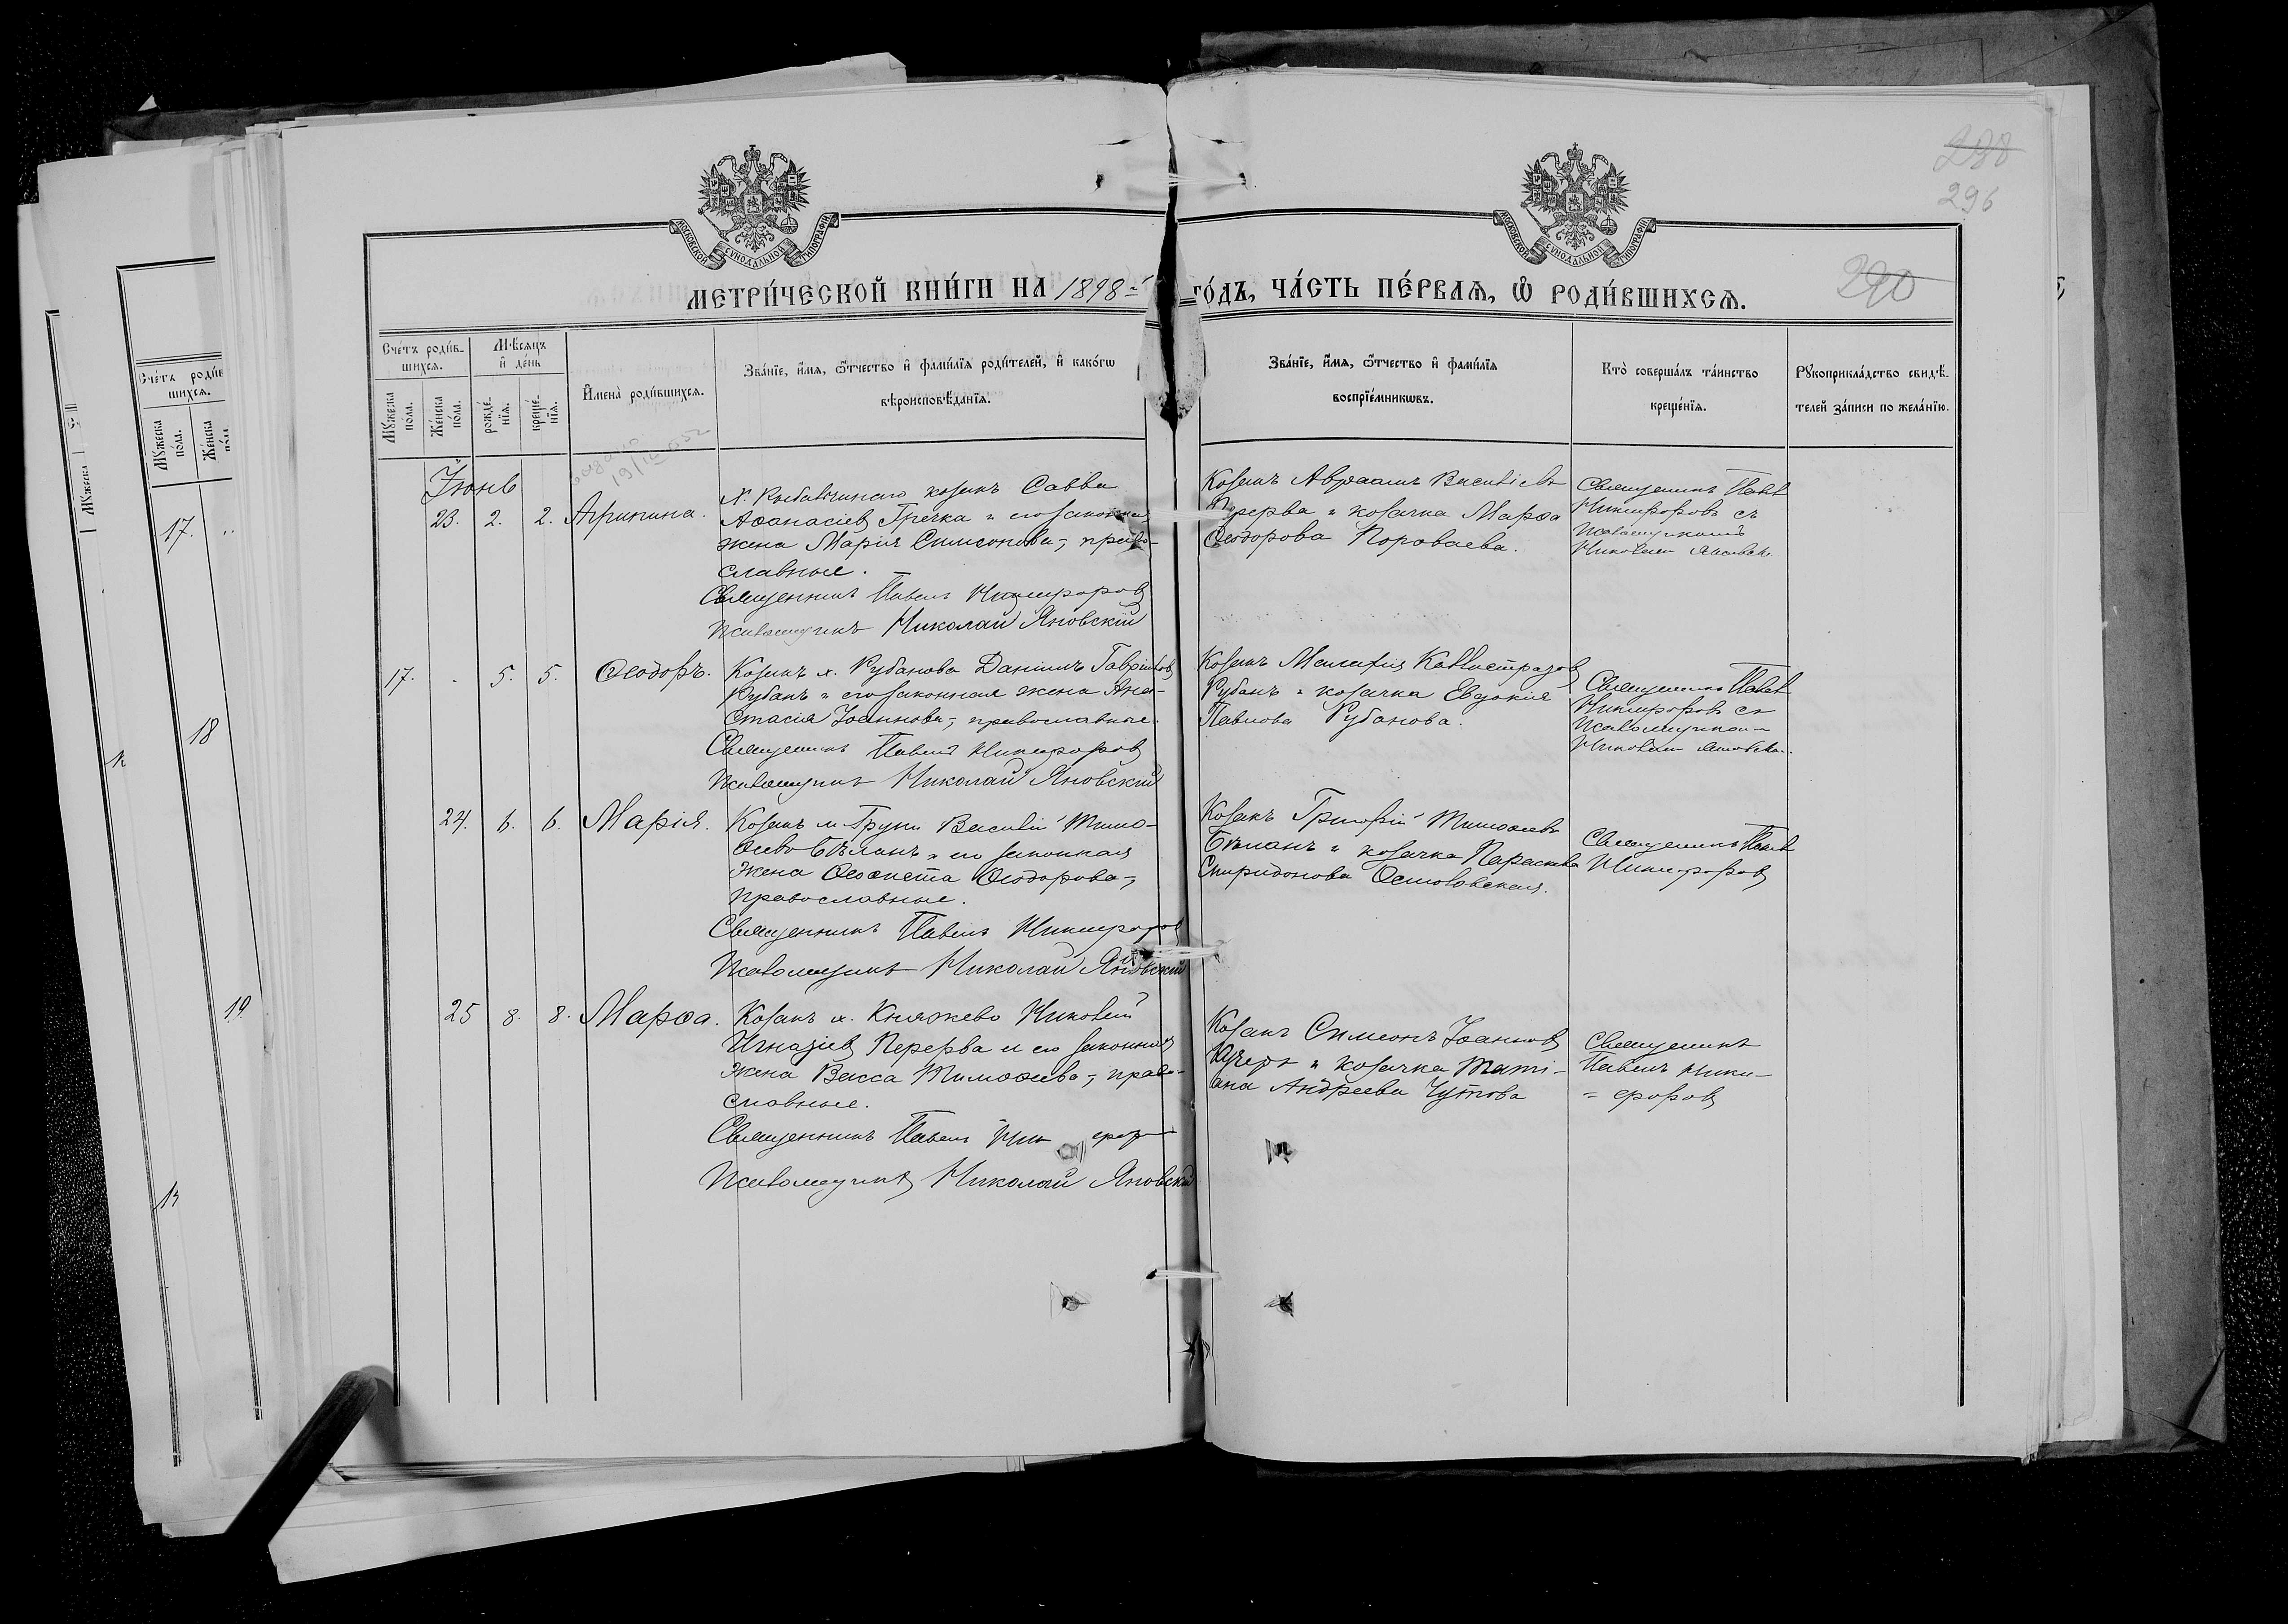 МОСКОВСКОЙ СѴНОДАЛЬНОЙ ТИПОГРАФІИ
МОСКОВСКОЙ СѴНОДАЛЬНОЙ ТИПОГРАФІИ
238
296
290
МЕТРИ́ЧЕСКОЙ КНИ́ГИ НА 1898 й ГО́ДЪ, ЧА́СТЬ ПЕ́РВАѦ, Ѡ҆ РОДИ́ВШИХСѦ.
Сче́тъ роди́в-
шихсѧ.
Мꙋжеска по́ла.
Же́нска по́ла.
Мѣ́сѧцъ
и҆ де́нь
рожде́-
нїѧ.
креще́-
нїѧ.
И҆мена̀ роди́вшихсѧ.
Зва́нїе, и҆́мѧ, ѻ҆́тчество и҆ фами́лїѧ роди́телей, и҆ како́гѡ
вѣроисповѣ́данїѧ.
Зва́нїе, и҆́мѧ, ѻ҆́тчество и҆ фами́лїѧ
воспрїе́мникѡвъ.
Кто̀ соверша́лъ та́инство
креще́нїѧ.
Рꙋкоприкла́дство свидѣ́-
телей за́писи по жела́нїю.
Сче́тъ роди́в
шихсѧ.
Мꙋжеска по́ла.
Же́нска по́ла
17.
18
19
Іюнь
23. 2. 2. Агрипина.
козакъ Савва
Аѳанасіев Гречка и его законная
жена Марія Симеонова, право-
славные.
Священникъ Павелъ Никифоров
Псаломщикъ Николай Яновскій
Козакъ Авраамъ Василіевъ
Перерва и козачка Марѳа
Ѳеодорова Пороваева.
Священникъ Павел
Никифоровъ съ
Псаломщикомъ
Николаем Яновск.
17. - 5. 5. Ѳеодоръ.
Козакъ х. Рубанова Даніилъ Гавріилов
Рубанъ и его законная жена Ана-
стасія Іоаннова, православные.
Священникъ Павелъ Никифоров
Псаломщикъ Николай Яновскій
Козакъ Каллистратов
Рубанъ и козачка Евдокія
Павлова Рубанова.
Священникъ Павел
Никифоровъ съ
Псаломщиком
Николаем Яновск.
24. 6. 6. Марія.
Козакъ м. Груни Василій Тимо-
ѳеевъ Бѣланъ и его законная
жена Ѳеоктиста Ѳеодорова,
православные.
Священникъ Павелъ Никифоров
Псаломщикъ Николай Яновскій
Козакъ Григорій Тимоѳеевъ
Бѣланъ и козачка Параскева
Спиридонова
Священникъ Павел
Никифоров
25 8. 8. Марѳа.
Козакъ х. Княжево Николай
Игнатіев Перерва и его законная
жена Васса Тимоѳеева, право-
славные.
Священникъ Павелъ Ник фор
Псаломщикъ Николай Яновскій
Козакъ Симеонъ Іоаннов
Кучеръ и козачка Тати-
ана Андреева Чутова
Священникъ
Павелъ Ники-
= форов